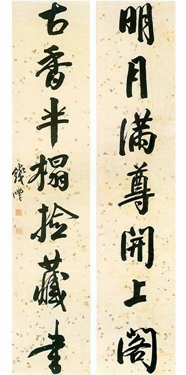 明月满尊開上閣
古香半榻捡藏書
錢灃